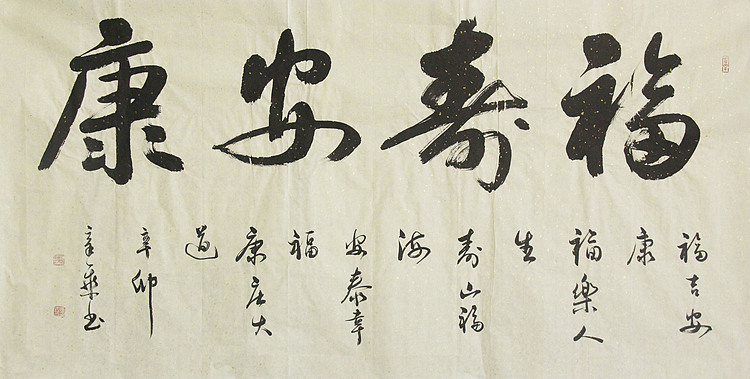 福寿安康
福吉安
康
福樂人
生
寿山福
海
安泰幸
福
康庄大
道
辛卯
书